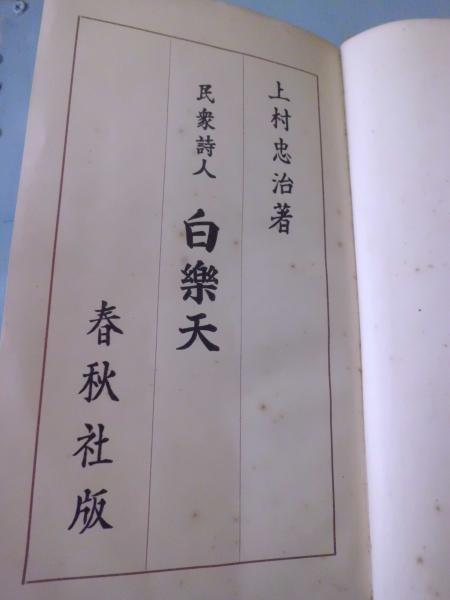 上村忠治著
民衆詩人 白樂天
春秋社版